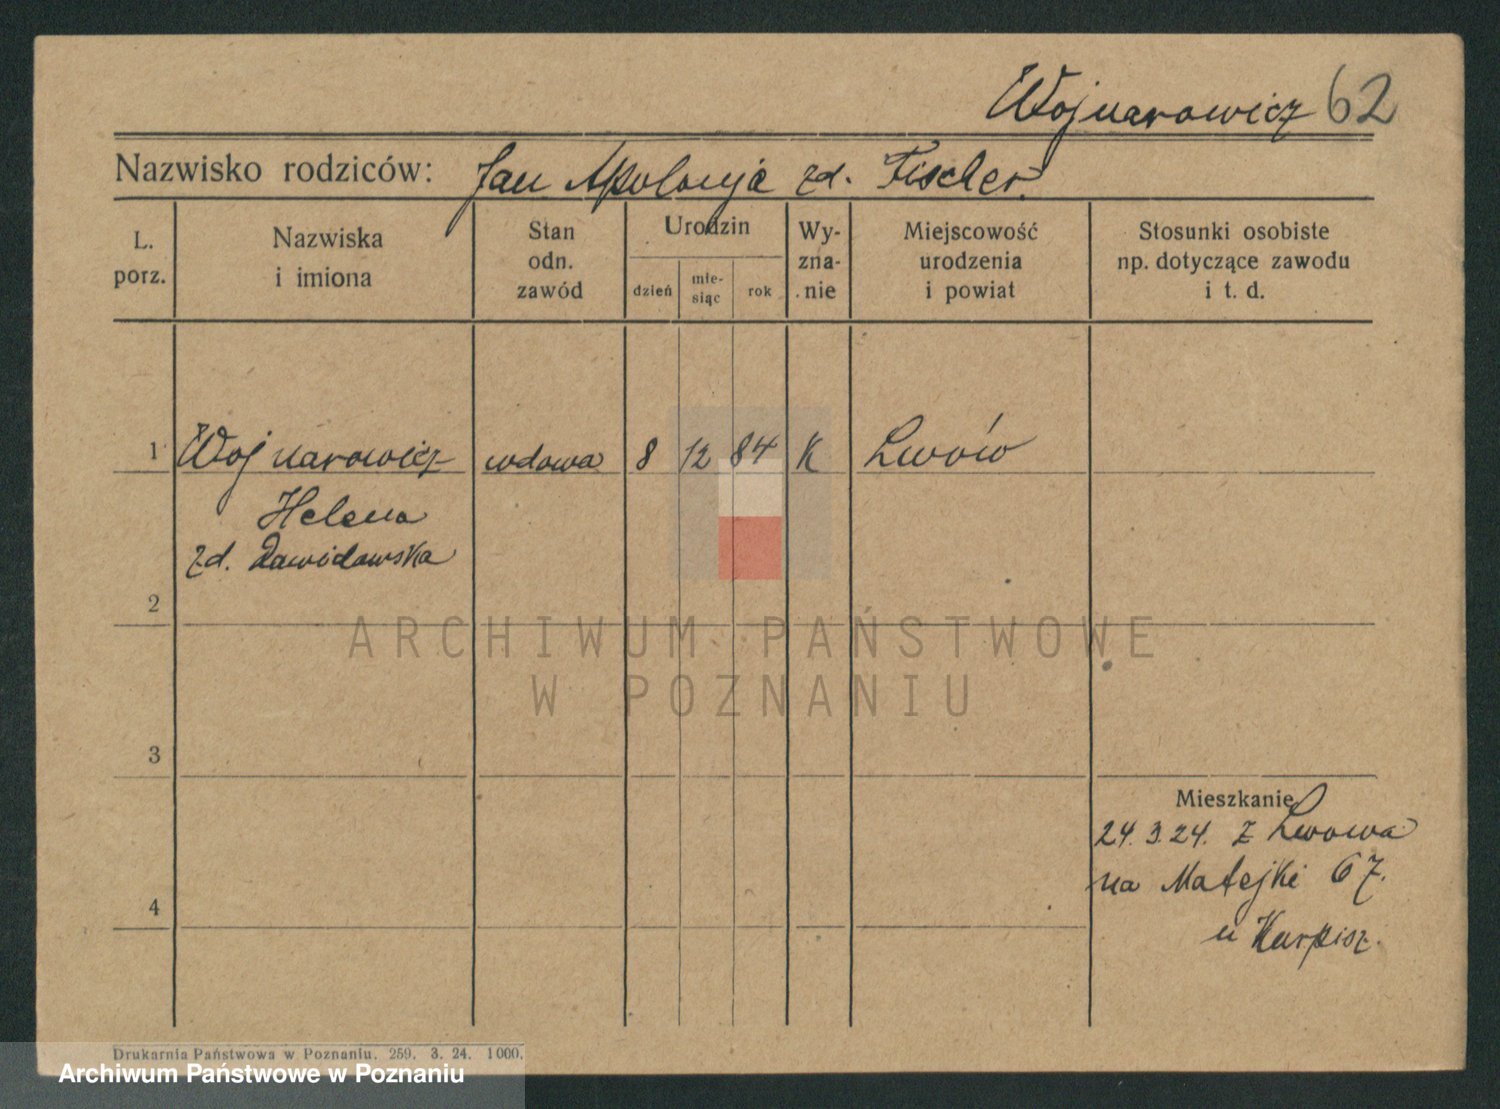 Wojnarowicz 62
Nazwisko rodziców: Jan Apolonja zd. Fischer.
L. porz.
Nazwiska i imiona
Stan odn. zawód
Urodzin
dzień
mie-siąc
rok
Wy-zna-nie
Miejscowość urodzenia i powiat
Stosunki osobiste np. dotyczące zawodu i t. d.
1 Wojnarowicz wdowa 8 12 84 K Lwów
Helena
zd. Dawidowska
2
ARCHIWUM PAŃSTWOWE
W POZNANIU
3
Mieszkanie
24.3.24. z Lwowa
na Matejki 67.
u Karpisz.
4
Drukarnia Państwowa w Poznaniu. 259. 3. 24. 1000.
Archiwum Państwowe w Poznaniu